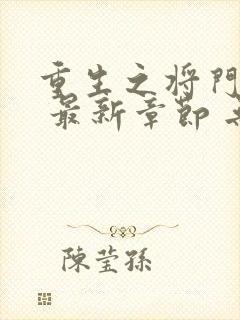 重生之将門
最新章節
陳莹孫